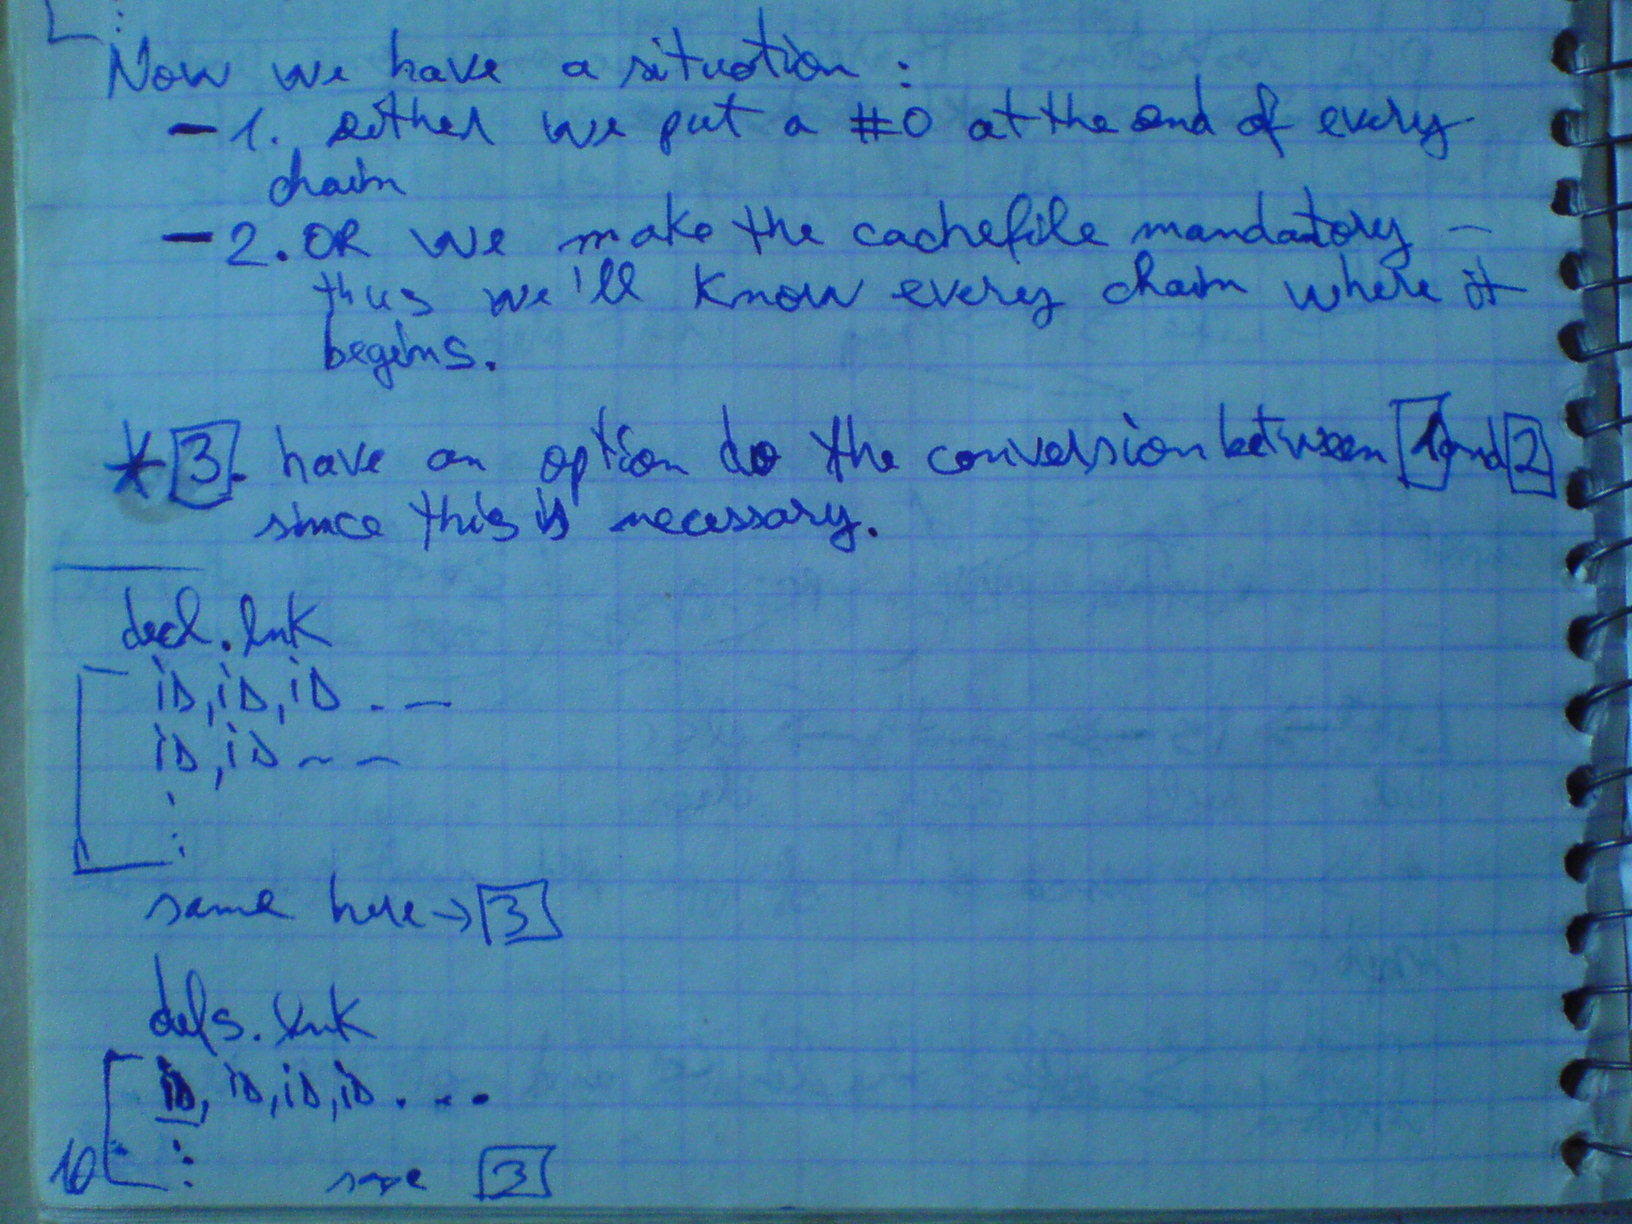 Now we have a situation :
- 1. either we put a #0 at the end of every
chain
- 2. OR we make the cachefile mandatory -
thus we'll know every chain where it
begins.
* 3. have an option do the conversion between 1 and 2
since this is necessary.
decl.lnk
iD, iD, iD . --
iD, iD - -
:
same here → 3
defs.lnk
iD, iD, iD, iD . . .
:
10
same 3